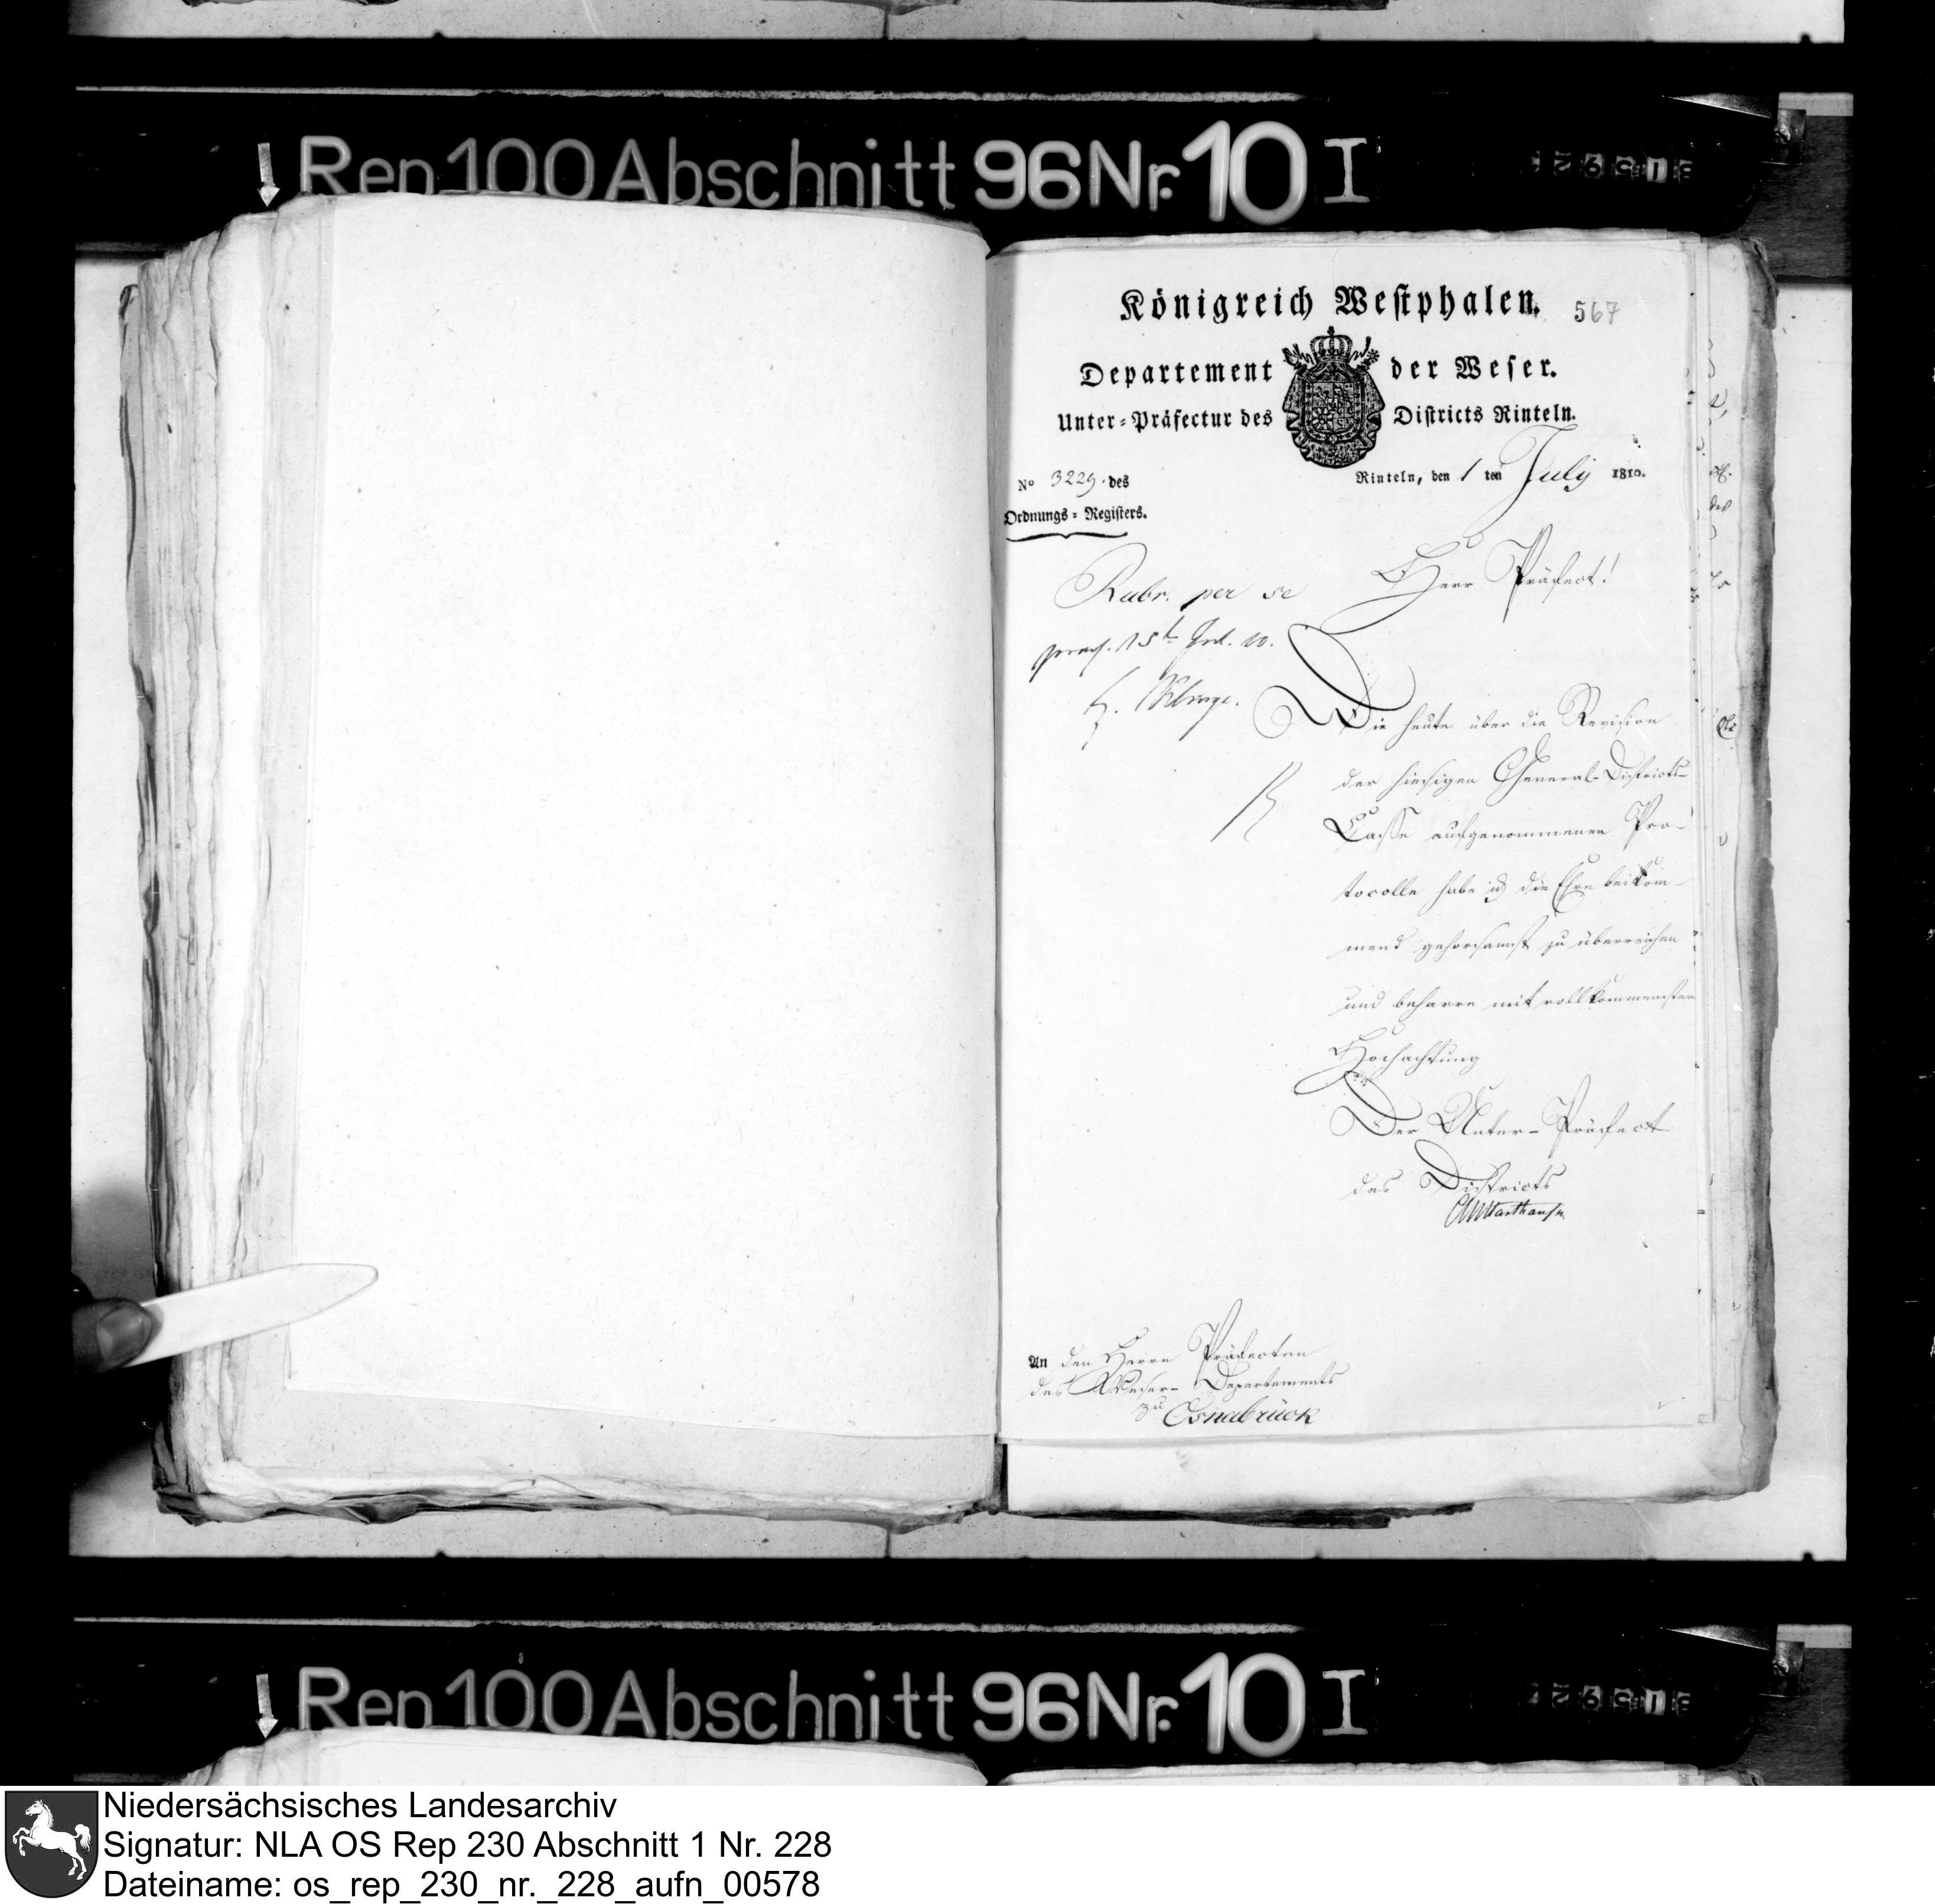 Rep 100 Abschnitt 96 Nr. 10 I
Königreich Westphalen.
567
Departement der Weser.
Unter-Präfectur des Districts Rinteln.
No 3229. des
Ordnungs-Registers.
Rinteln, den 1 ten July 1810.
Rubr. per se
Herr Präfect!
Die heute über die Revision
der hiesigen General-Districts-
Casse aufgenommenen Pro-
tocolle habe ich die Ehre beikom-
mend gehorsamst zu überreichen
und beharre mit vollkommenster
Hochachtung
Der Unter-Präfect
des Districts
An den Herrn Präfecten
des Weser-Departements
zu Osnabrück
Rep 100 Abschnitt 96 Nr. 10 I
Niedersächsisches Landesarchiv
Signatur: NLA OS Rep 230 Abschnitt 1 Nr. 228
Dateiname: os_rep_230_nr._228_aufn_00578